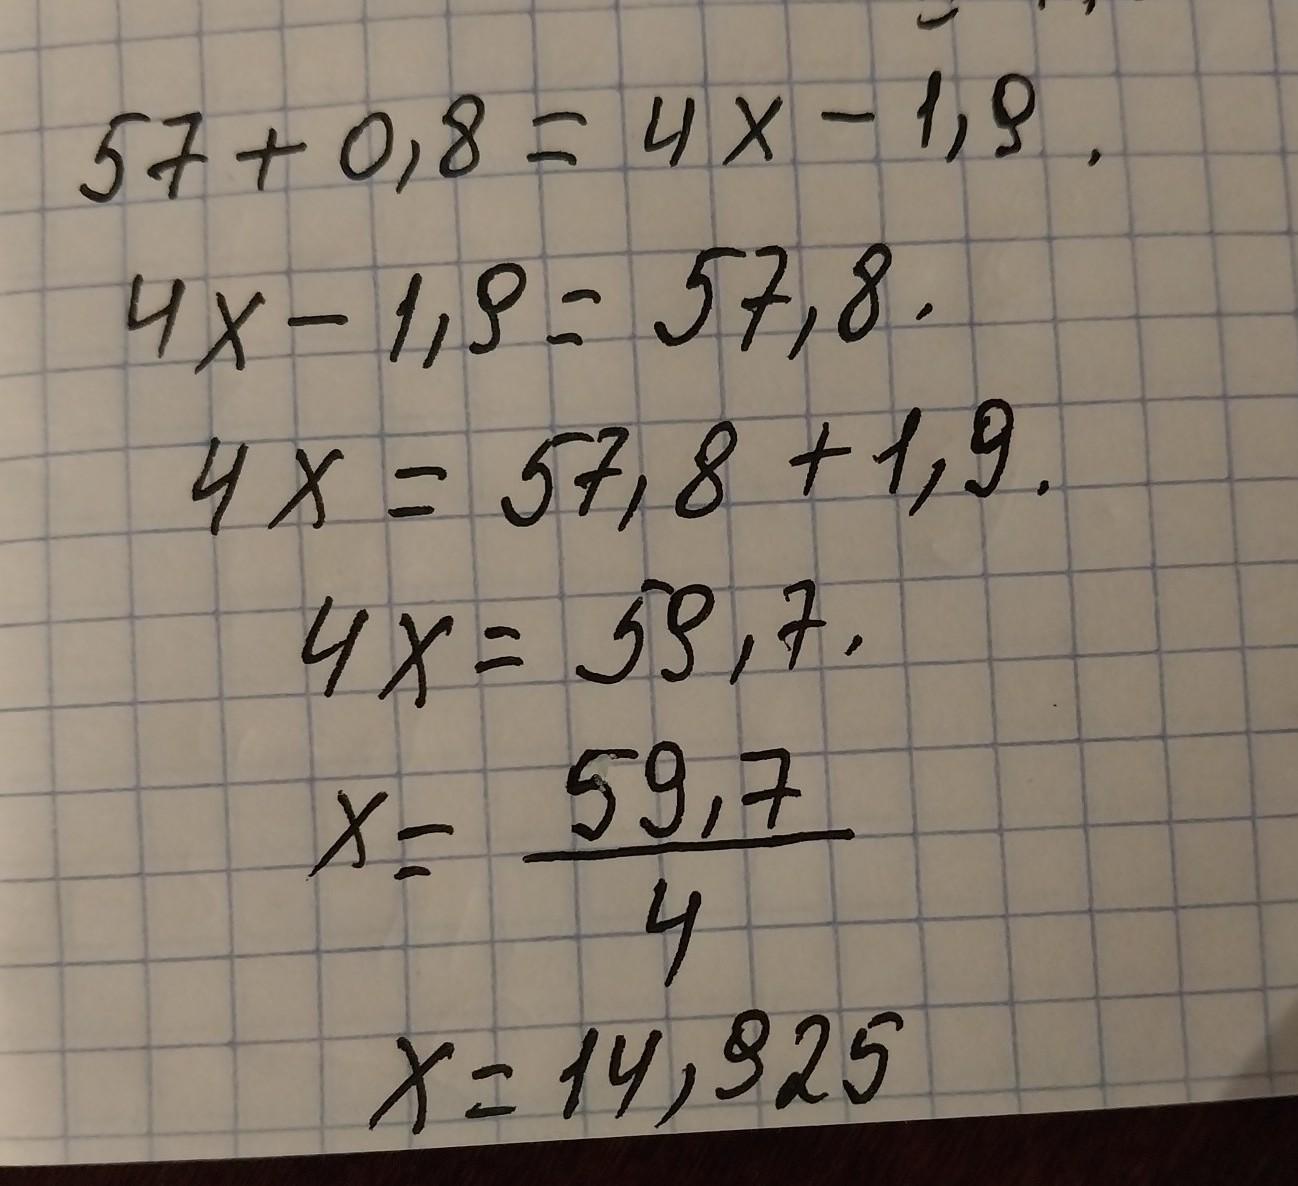 57 + 0,8 = 4x - 1,9.
4x - 1,9 = 57,8.
4x = 57,8 + 1,9.
4x = 59,7.
x = 59,7
4
x = 14,925